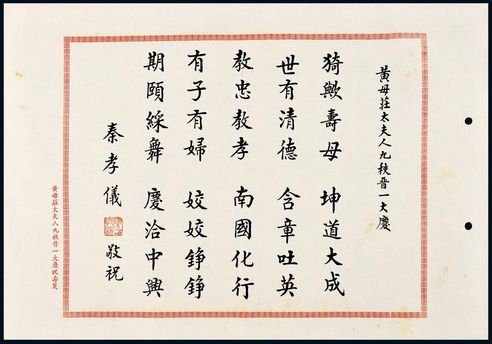 黃母莊太夫人九秩晉一大慶
猗歟壽母 坤道大成
世有清德 含章吐英
教忠教孝 南國化行
有子有婦 姣姣錚錚
期頤綵舞 慶洽中興
秦孝儀 敬祝
黃母莊太夫人九秩晉一大慶祝壽箋